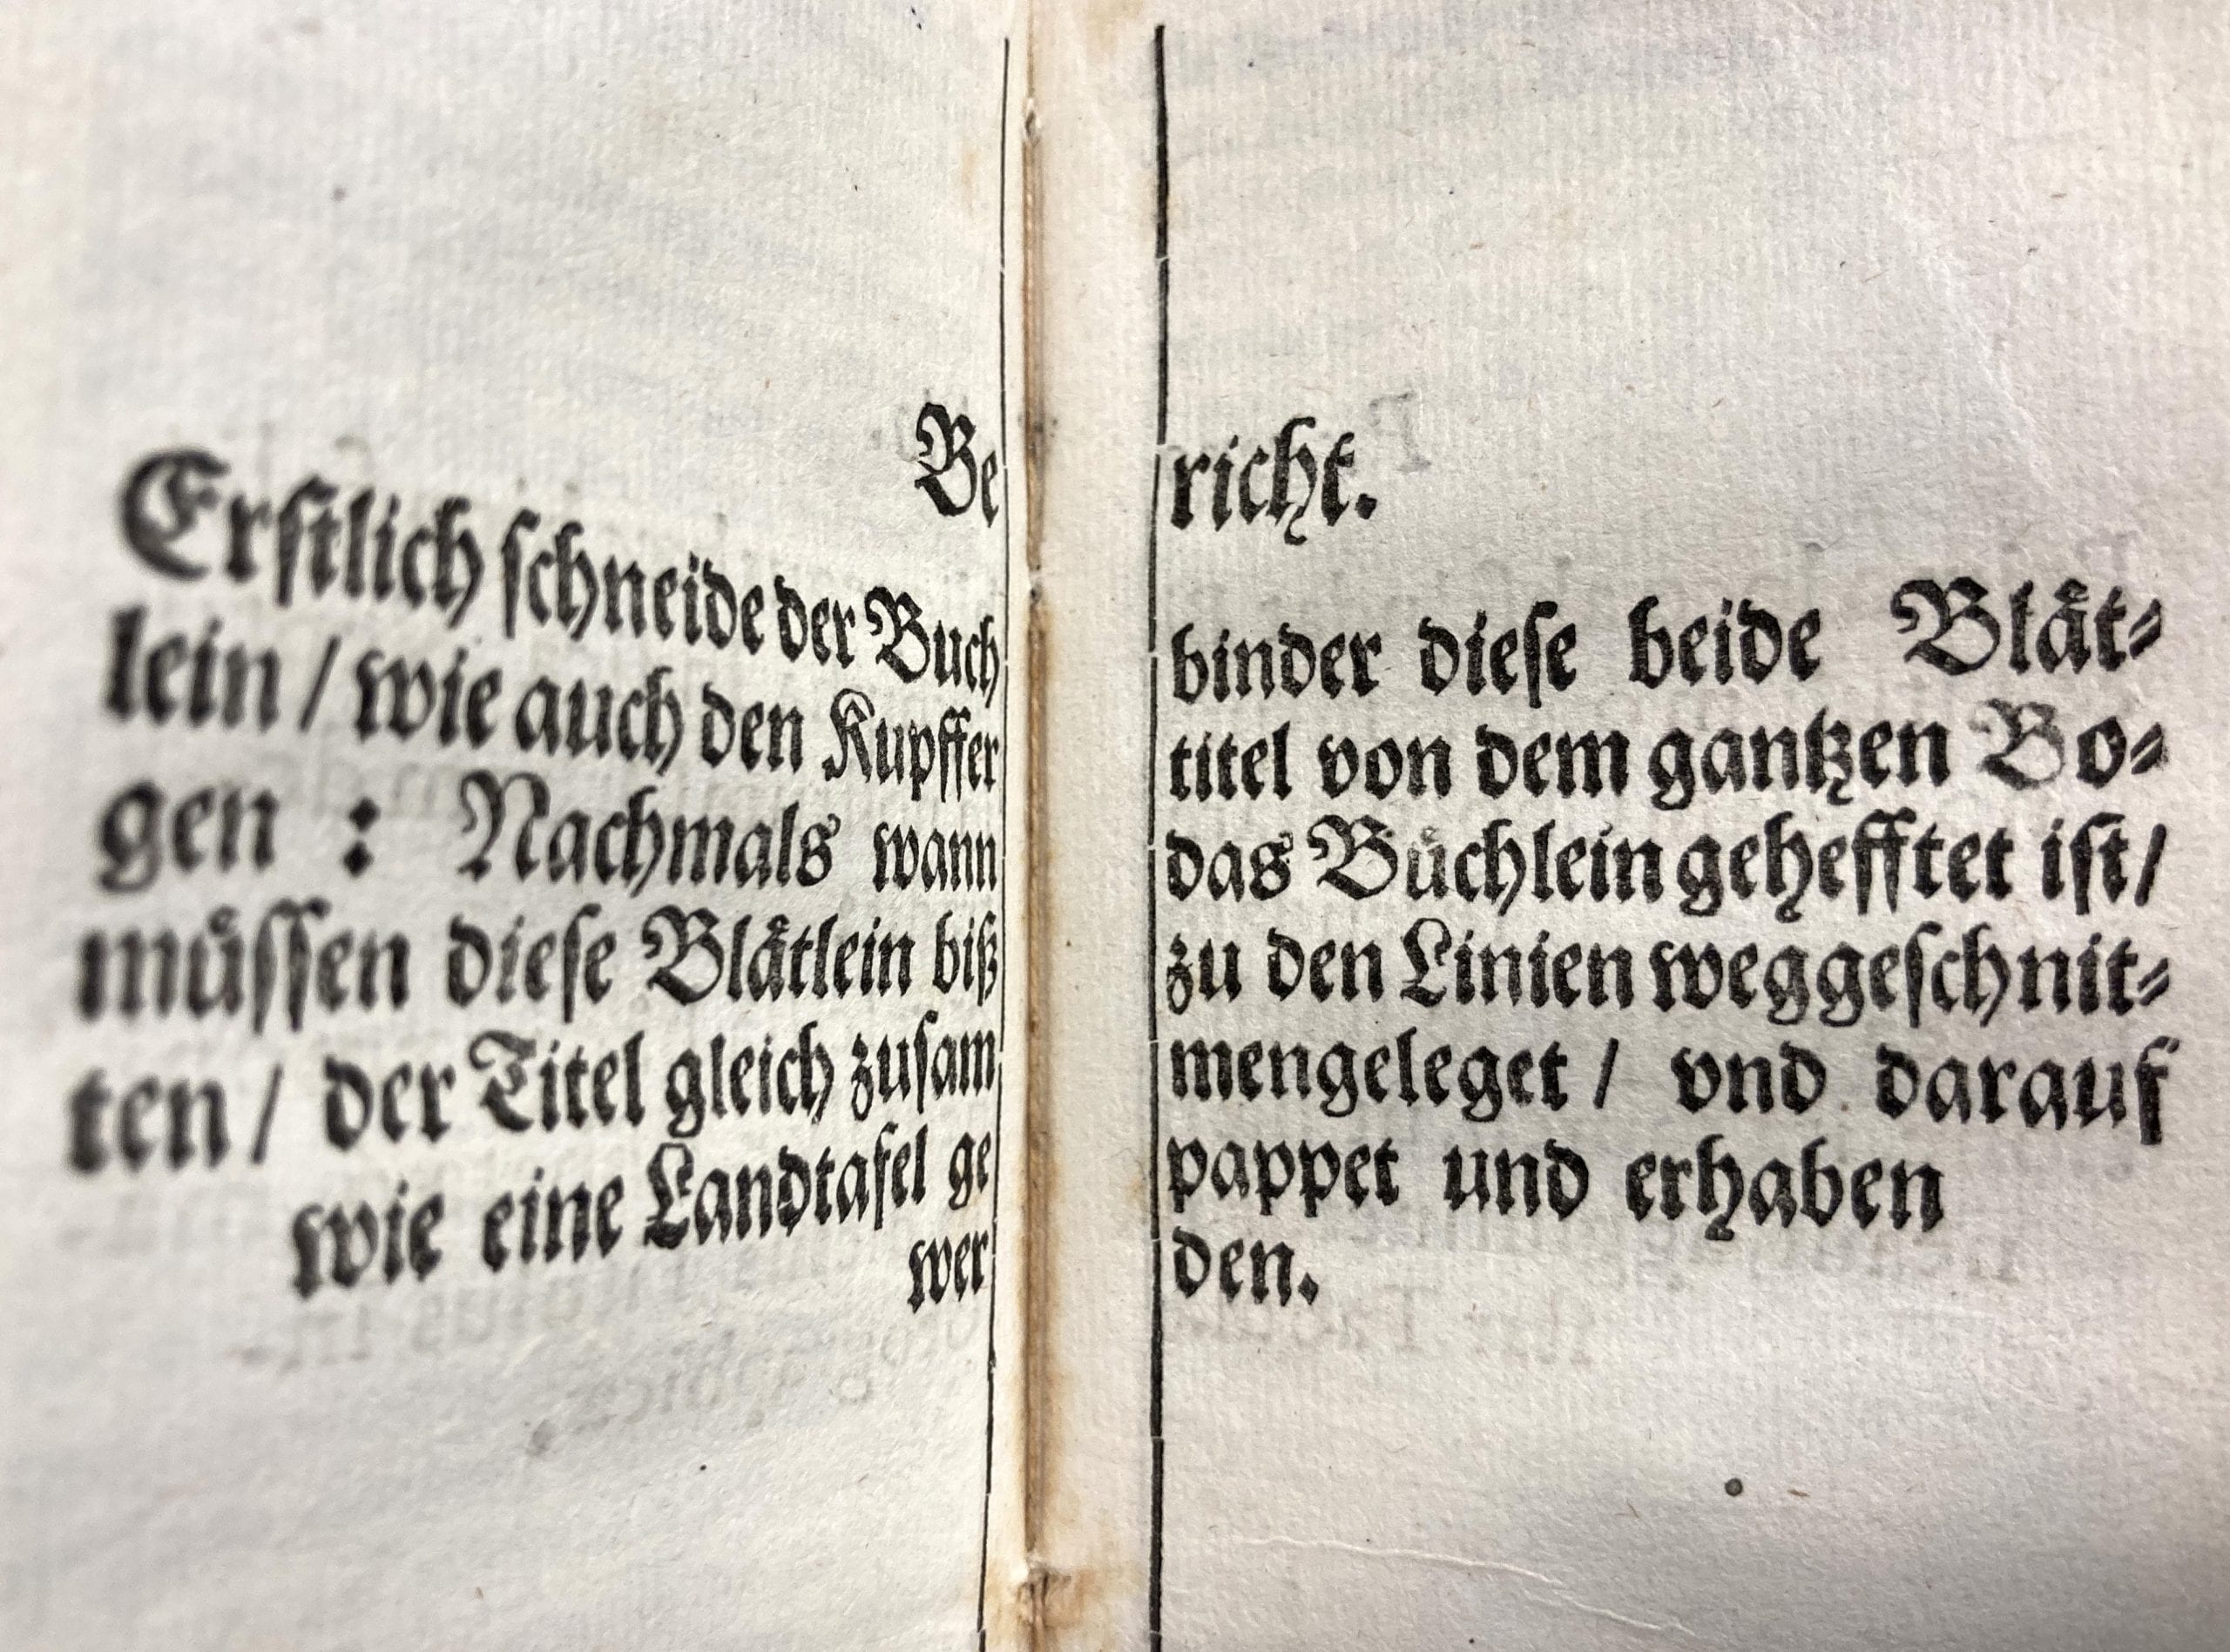 Bericht.
Erstlich schneide der Buchbinder diese beide Blåt⸗
lein / wie auch den Kupffertitel von dem gantzen Bo⸗
gen : Nachmals wann das Bůchlein gehefftet ist /
můssen diese Blåtlein biß zu den Linien weggeschnit⸗
ten / der Titel gleich zusammengeleget / vnd darauf
wie eine Landtafel gepappet und erhaben
werden.